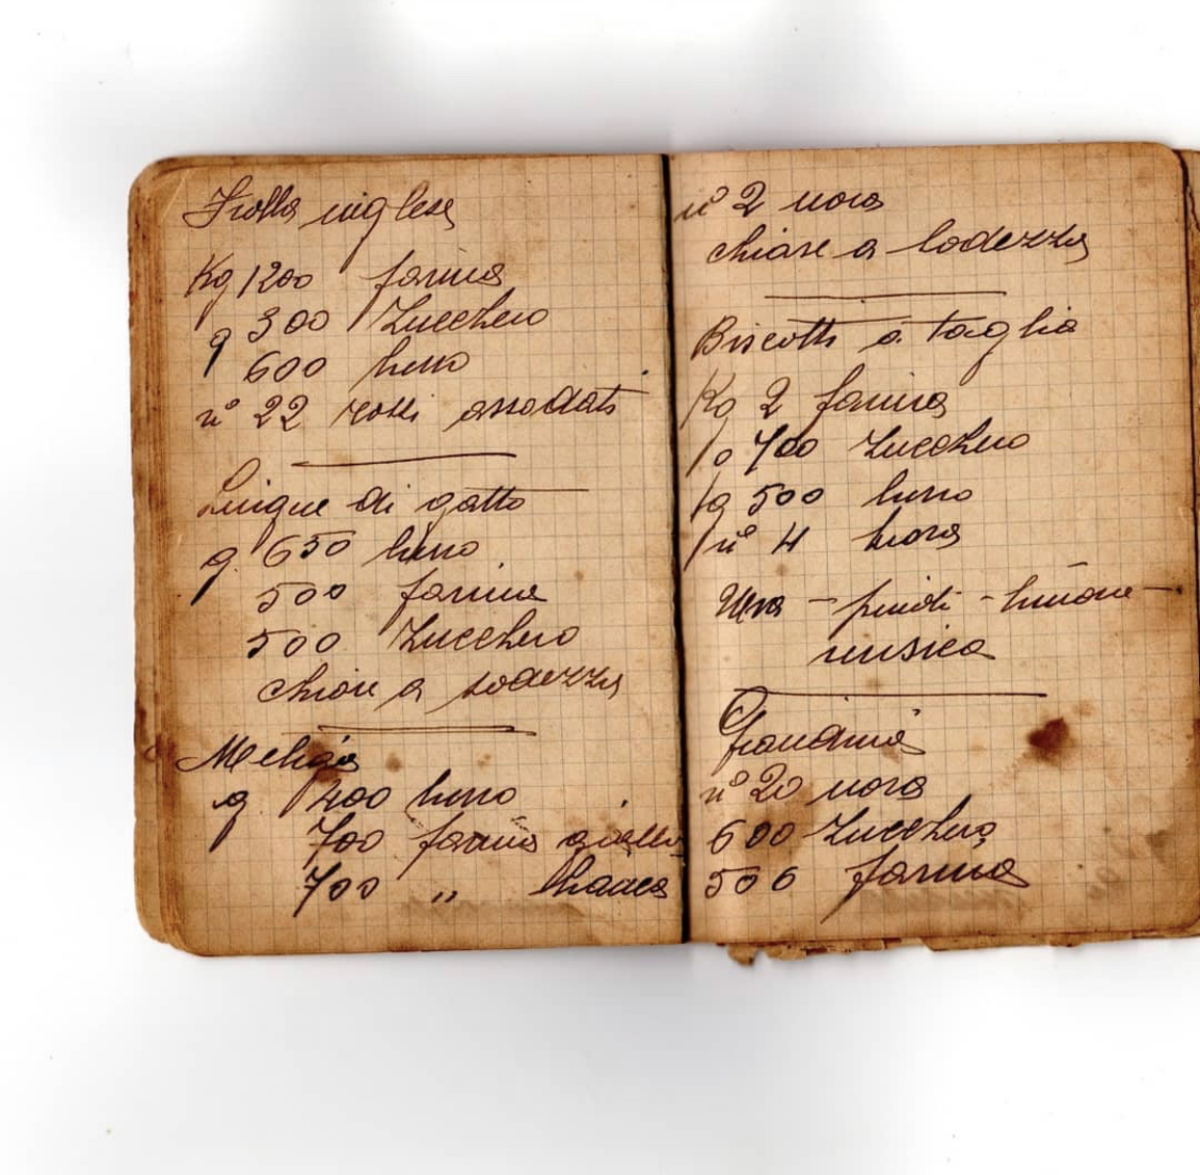 Frolla inglese
Kg 1200 farina
g 300 Zucchero
600 burro
n° 22 rossi assodati
Lingue di gatto
g. 650 burro
500 farina
500 Zucchero
chiare a sodezza
Meliga
g 400 burro
700 farina gialla
700 " bianca
n° 2 uova
chiare a sodezza
Biscotti a taglia
Kg 2 farina
g 700 Zucchero
g 500 burro
n° 4 uova
Uva - - limone -
n° 20 uova
600 Zucchero
500 farina